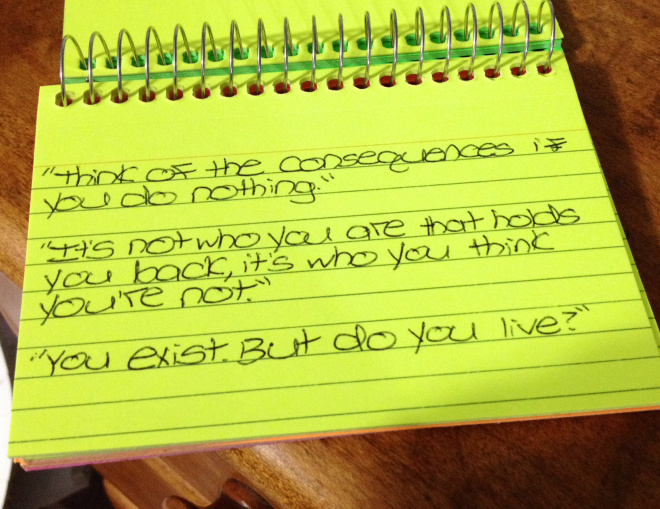 "Think of the consequences if
you do nothing."
"It's not who you are that holds
you back, it's who you think
you're not."
"You exist. But do you live?"